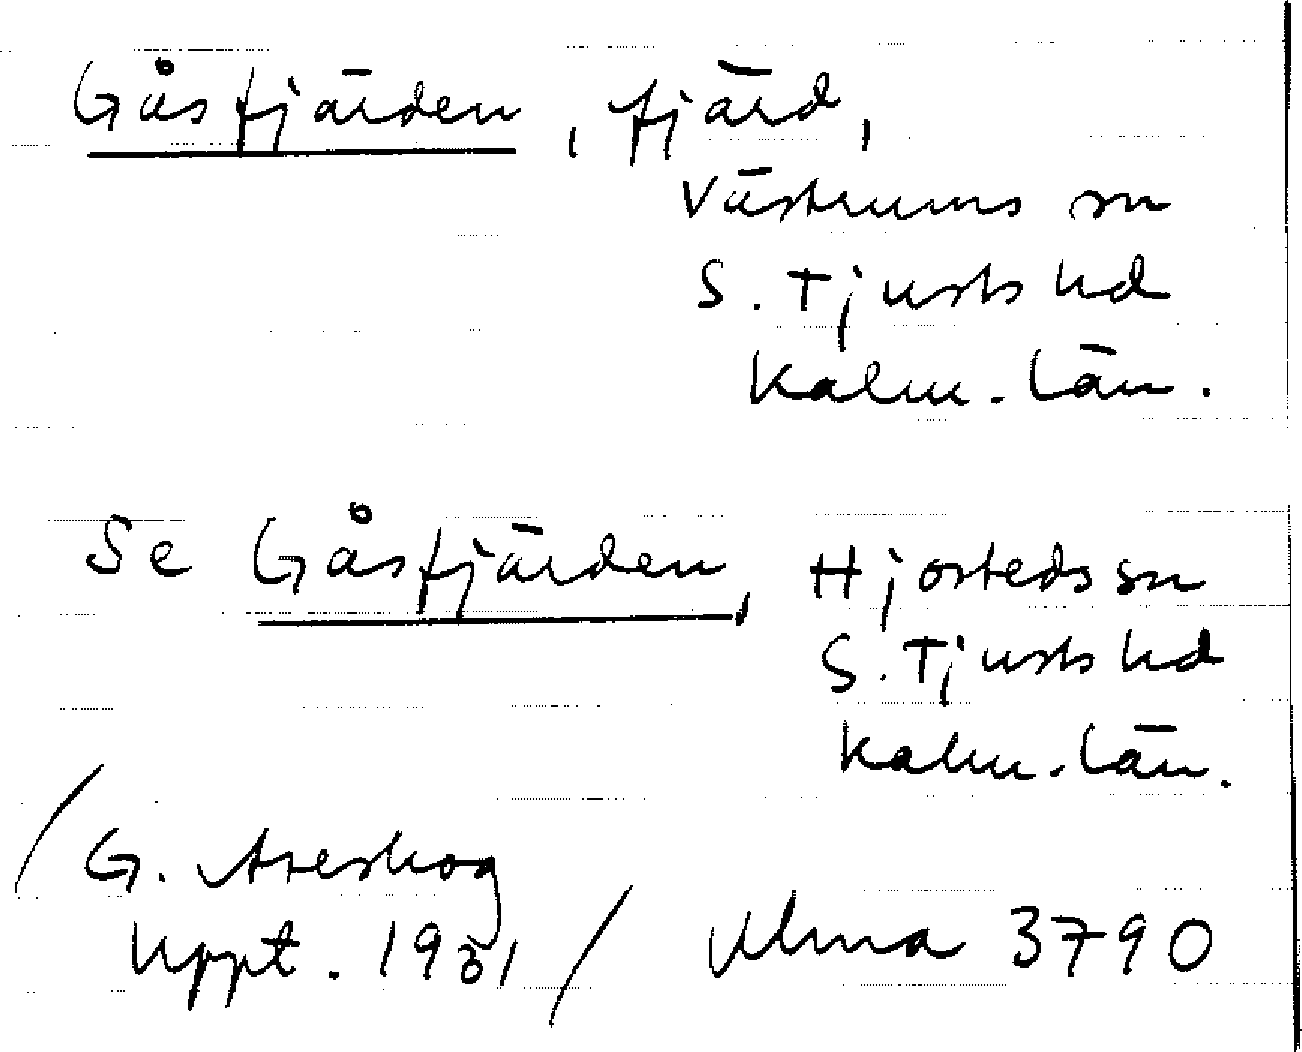 Gåsfjärden, fjärd,
Västrums sn
S. Tjusts hd
Kalm. län.
Se Gåsfjärden, Hjorteds sn
S. Tjusts hd
Kalm. län.
/G. Areskog
Uppt. 1931/ Ulma 3790